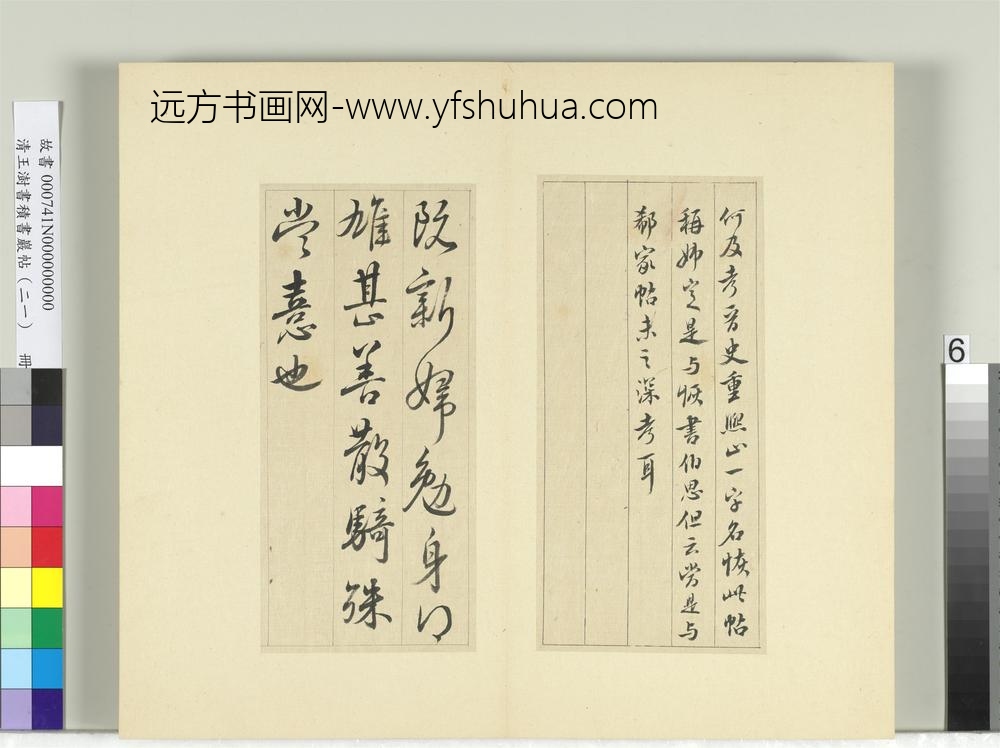 远方书画网-www.yfshuhua.com
故書 000741N000000000
清王澍書積書巖帖(二一) 冊
6
何及考晉史重熙止一字名恢此帖
稱姊定是与恢書伯思但云當是与
郗家帖未之深考耳
既新婦勉身
雄甚善散騎殊
當憙也